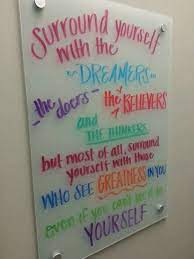 Surround yourself
with the
DREAMERS
the doers the BELIEVERS
and
THE THINKERS
but most of all, surround
yourself with those
WHO SEE GREATNESS IN YOU
even if you can't see it in
YOURSELF